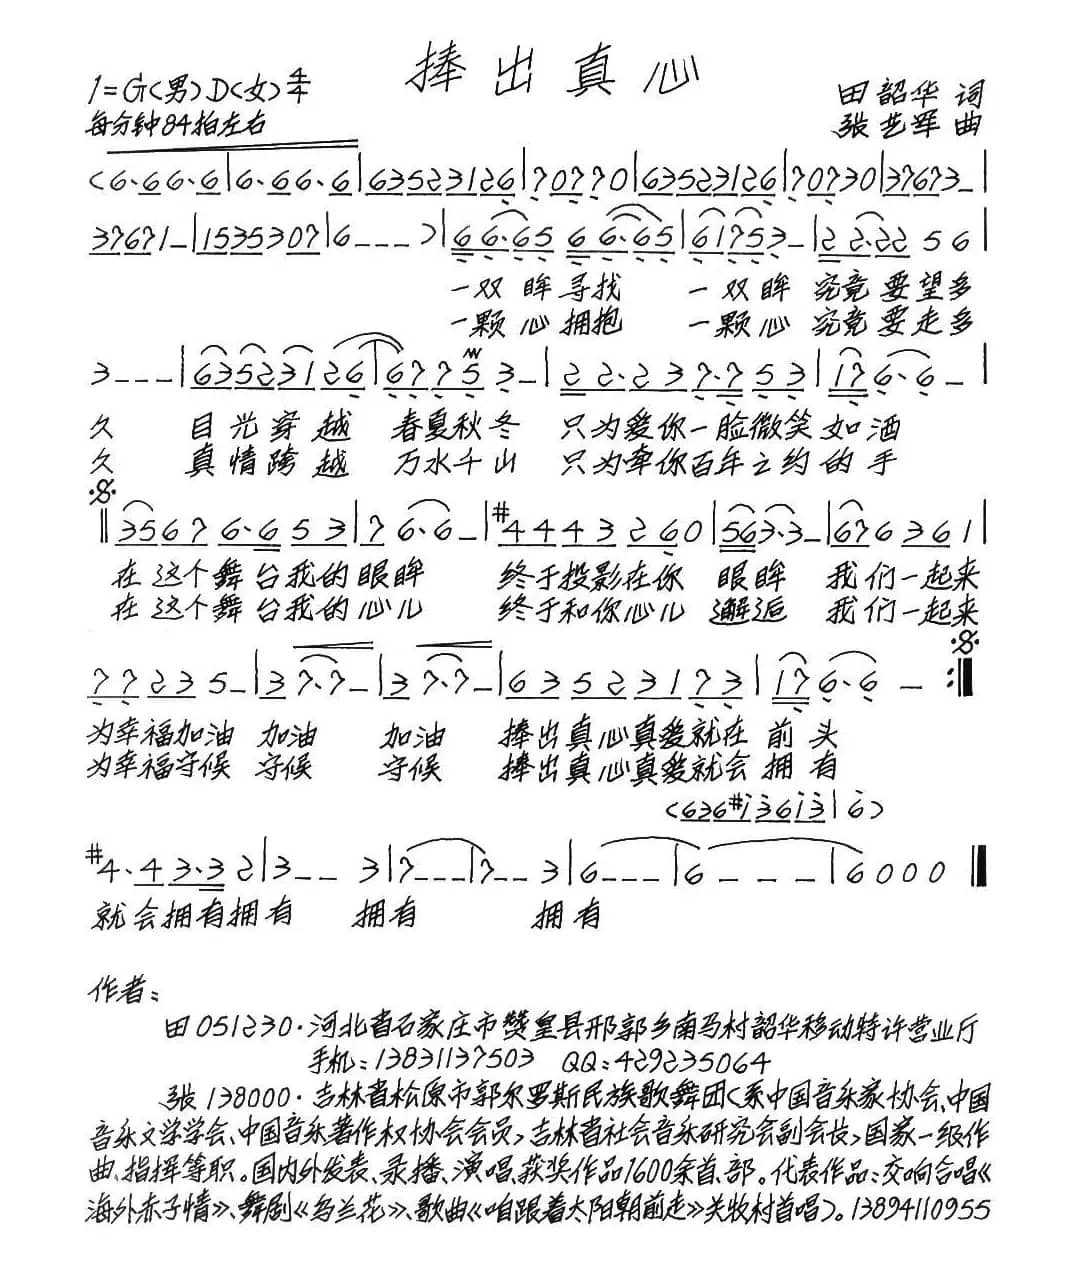 捧出真心
1=G(男) D(女) 4/4
田韶华 词
每分钟84拍左右
张艺军 曲
(6·6 6·6|6·6 6·6|63523126|7 07 70|63523126|7 07 30|37673–|
37671–|1535307|6 – – –)|6 6·65 6 6·65|61753–|2 2·22 5 6|
一双眸寻找 一双眸 究竟要望多
一颗心拥抱 一颗心 究竟要走多
3 – – –|63523126|6775 3–|2 2·23 7·7 53|17 6·6 –|
久 目光穿越 春夏秋冬 只为爱你一脸微笑如酒
久 真情跨越 万水千山 只为牵你百年之约的手
3567 6·6 53|7 6·6 –|#4443 260|563·3–|676361|
在这个舞台我的眼眸 终于投影在你 眼眸 我们一起来
在这个舞台我的心儿 终于和你心儿 邂逅 我们一起来
7723 5–|3 7·7–|3 7·7–|6352 3173|17 6·6 – :|
为幸福加油 加油 加油 捧出真心真爱就在 前头
为幸福守候 守候 守候 捧出真心真爱就会 拥有
(636#i 36i3|6)
#4·4 3·3 2|3 – – 3|7 – – –|7 – – 3|6 – – –|6 – – –|6 0 0 0‖
就会拥有拥有 拥有 拥有
作者：
田 051230·河北省石家庄市赞皇县邢郭乡南马村韶华移动特许营业厅
手机：13831137503 QQ：429235064
张 138000·吉林省松原市郭尔罗斯民族歌舞团（系中国音乐家协会、中国
音乐文学学会、中国音乐著作权协会会员，吉林省社会音乐研究会副会长，国家一级作
曲、指挥等职。国内外发表、录播、演唱、获奖作品1600余首、部。代表作品：交响合唱《
海外赤子情》、舞剧《乌兰花》、歌曲《咱跟着太阳朝前走》关牧村首唱）。13894110955